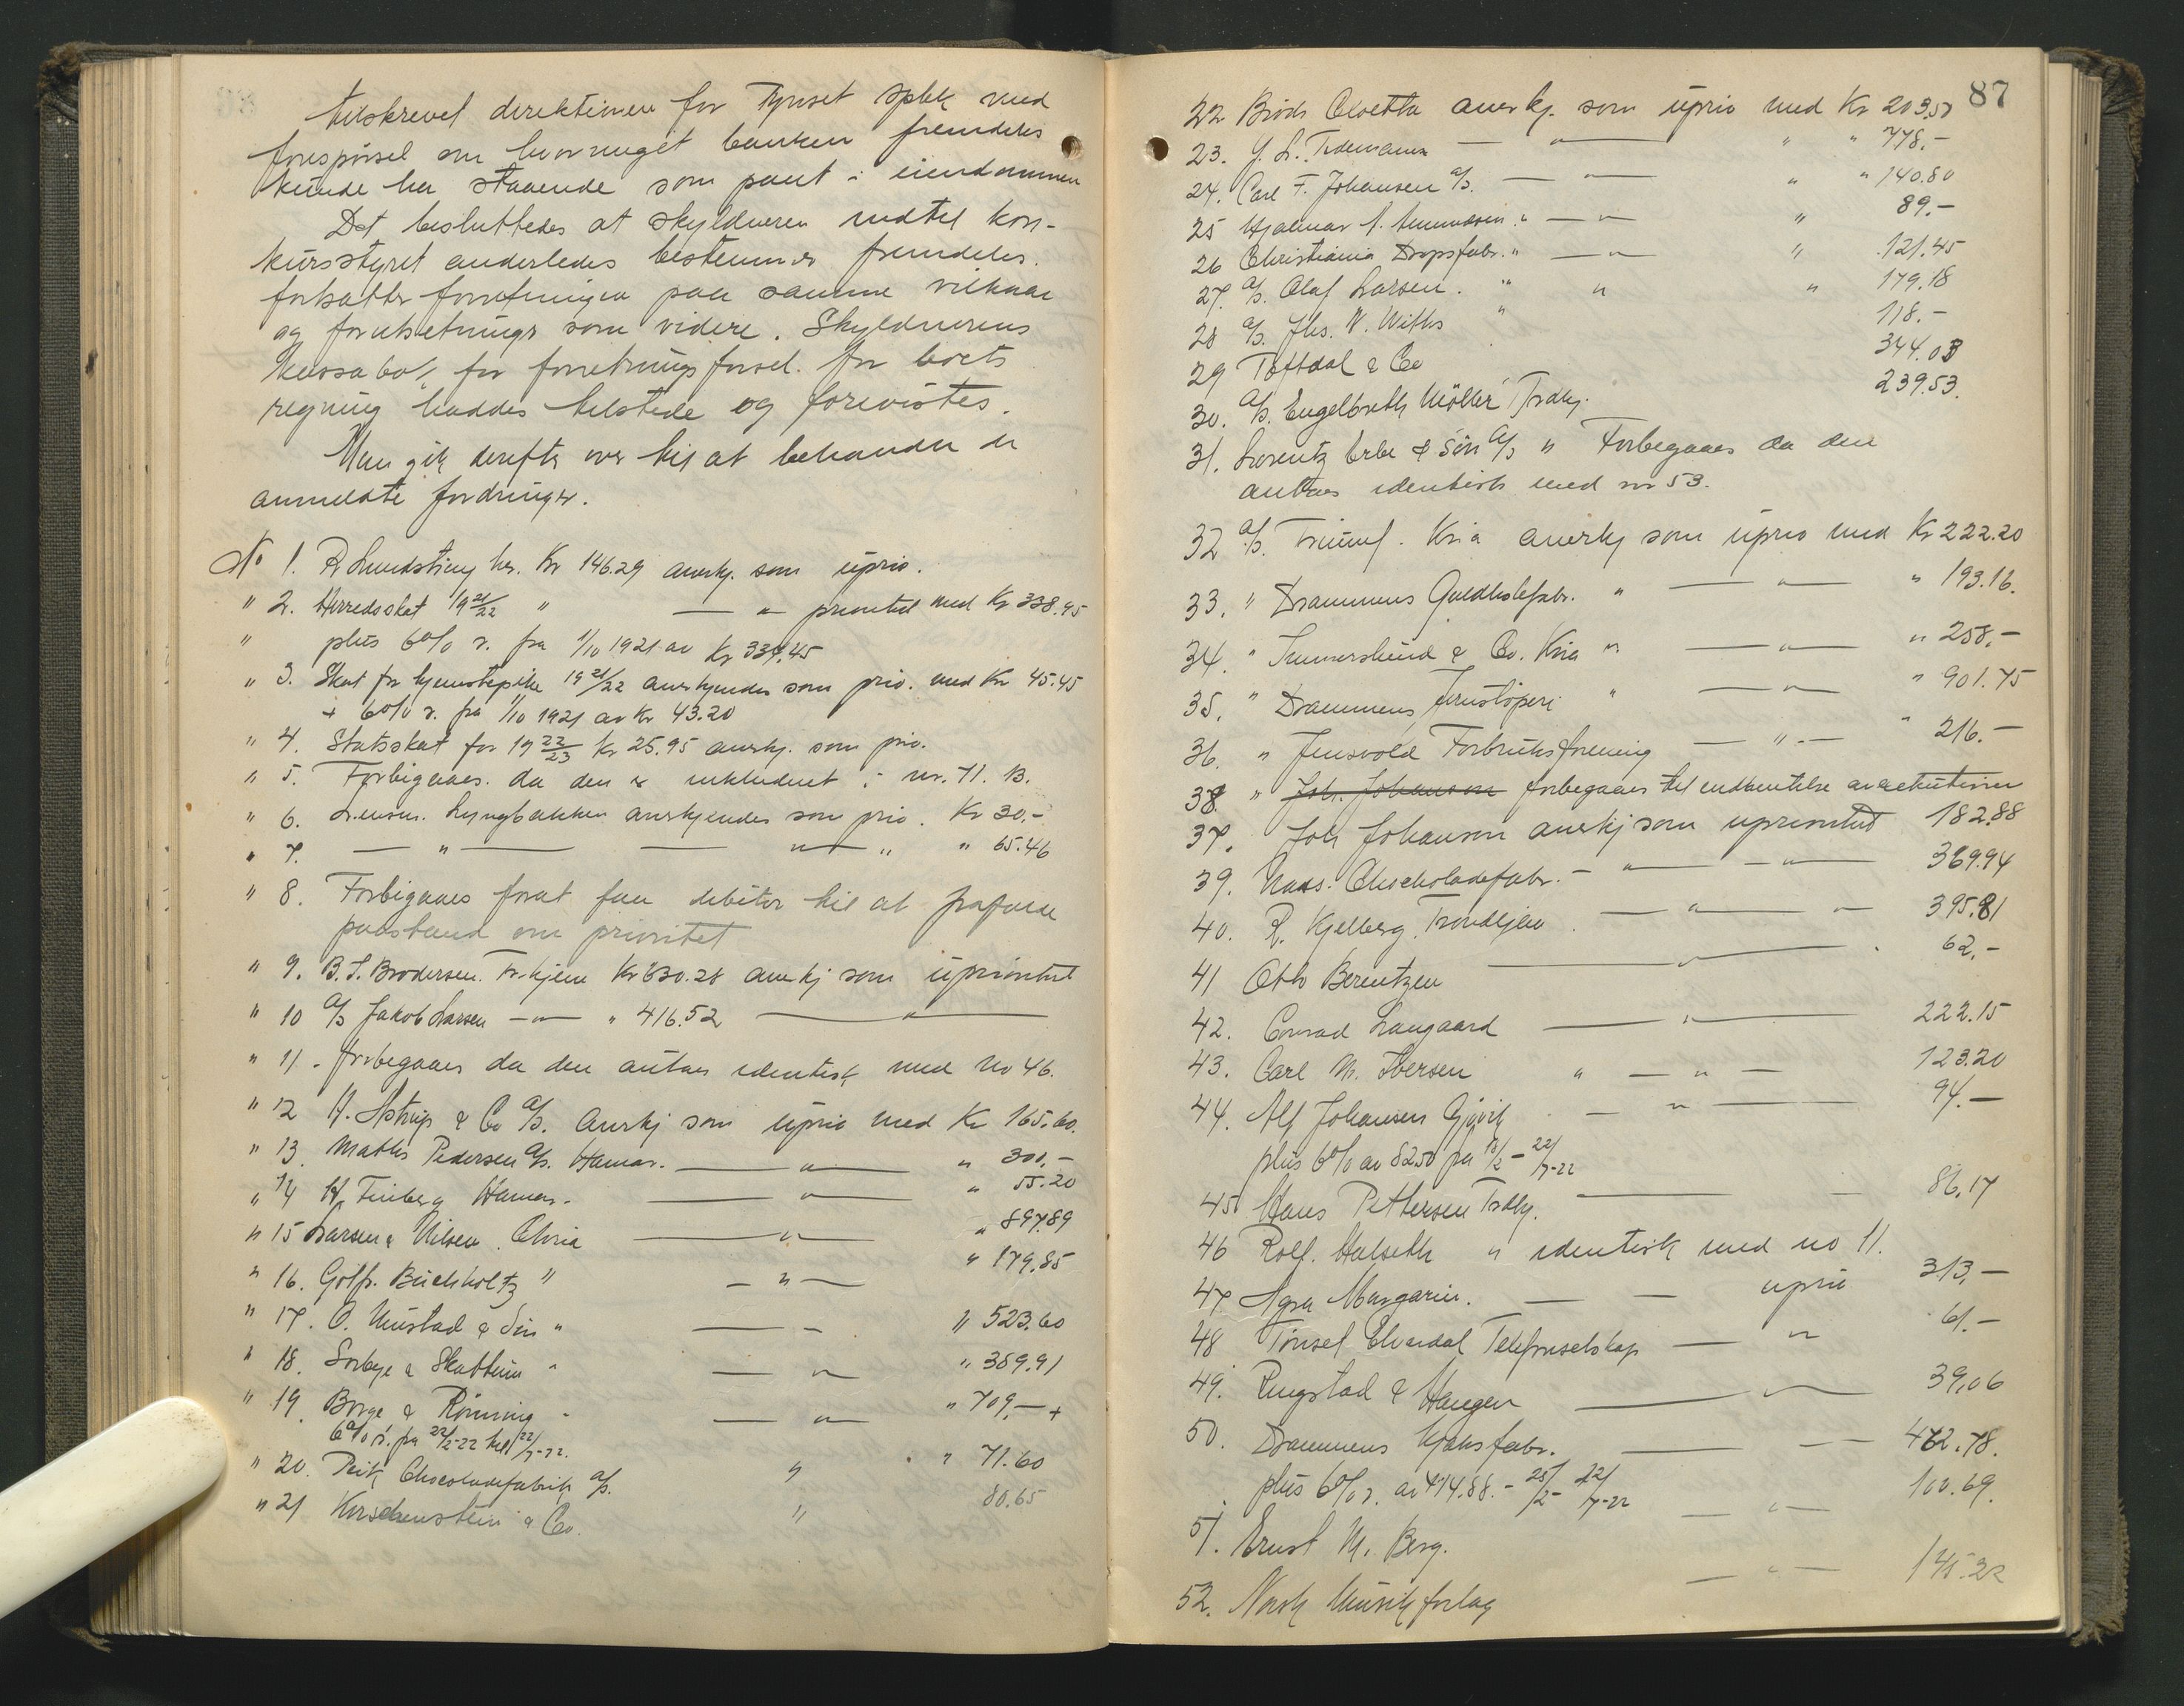 tilskrevet direktionen for Tynset spbk med
forespørsel om hvormeget banken fremdeles
kunde ha staaende som pant i eiendommen
Det besluttedes at skyldneren indtil kon-
kursstyret anderledes bestemmer fremdeles
fortsætter forretningen paa samme vilkaar
og forutsetninger som videre. Skyldnerens
kassabok for forretningsførsel for boets
regning haddes tilstede og forevistes.
Man gik derefter over til at behandle de
anmeldte fordringer.
No 1. R. Lundsting her. Kr 146.29 anerkj. som uprio.
" 2. Herredsskat 19 21/22 " — " — prioritet med Kr 338.45
" plus 6% r. fra 1/10 1921 av Kr 334.45
" 3. Skat for tjenestepike 19 21/22 anerkjendes som prio. med Kr 45.45
+ 6% r. fra 1/10 1921 av Kr 43.20
" 4. Statsskat for 19 22/23 Kr 25.95 anerkj. som prio.
" 5. Forbigaaes. da den er inkluderet i nr. 71. B.
" 6. Lensm. Lyngbakken anerkjendes som prio. Kr 30.-
" 7. — " — — " — " " 65.46
" 8. Forbigaaes forat faa debitor til at frafalde
paastand om prioritet
" 9. B. S. Brodersen. Tr.hjem Kr 630.28 anerkj som uprioritet
" 10 A/S Jakob Larsen — " — " 416.52 — " —
" 11 . forbegaaes da den antaes identisk med No 46.
" 12 H. Astrup & Co A/S. Anerkj som uprio med Kr 165.60.
" 13. Mathis Pedersen A/S. Hamar. — " — " 300.-
" 14 H. Finberg Hamar. — " — " 55.20
" 15 Larsen & Nilsen. Chria — " — " 897.89
" 16. Golfr. Buchholtz " — " — " 179.85
" 17. O. Mustad & Søn " — - " 523.60
" 18. Sorbye & Skattum " — " " 389.91
" 19. Borge & Rønning " — " — " 709,— +
6% r. fra 22/2-22 til 22/7-22.
" 20. Peik Chocoladefabrik A/S. " " 71.60
" 21 Kirschenstein & Co. " 80.65
87
22 Brødr Cloetta anerkj. som uprio med Kr 203,50
23. J. L. Tidemann — " — " " 778.-
24. Carl F. Johansen A/S. — " — " " 140.80
25 Hjalmar A. Amundsen " — " — " 89.-
26 Christiania Dropsfabr. " — " — " 121.45
27. A/S. Olaf Larsen. " " " 179.18
28 A/S. Jhs. N. Withs " 118.-
29 Toftdal & Co 344.03
30. A/S. Engelbreth Möller Trdhj. 239.53.
31. Lorentz Erbe & Søn A/S " Forbegaaes da den
antaes identisk med nr 53.
32 A/S. Triumf. Kria anerkj som uprio med Kr 222.20
33. " Drammens Guldlistefabr. " — " — " 193.16.
34. " Immerslund & Co. Kria " — " — " 258.-
35. " Drammens Jernstöperi " — " — " 901.75
36. " Jensvold Forbruksforening — " — " 216.-
38. " Joh. Johanson forbegaaes til indhentelse av
37. Joh Johanson anerkj som uprioritet 182.88
39. Nads. Chocholadefabr. — " — " — 369.94
40. R. Kjelberg. Trondhjem. — " — " — 395.81
41 Otto Berentzen — " — 62,-
42. Conrad Langaard — " — 222.15
43. Carl M. Iversen " — " — 123.20
44. Alf Johansen Gjøvik — " — 94.—
plus 6% av 82.50 fra 18/2 - 22/7-22
45 Hans Pettersen Trdhj. — — 86.17
46 Rolf. Halseth " identisk med no 11.
47. Agra Margarin. — — uprio 313,—
48 Tönset Elverdal Telefonselskap — " 61.—
49. Ringstad & Haugen — " — 39,06
50. Drammens Kjeksfabr. — — 472.78.
plus 6% r. av 414.88. - 25/2 - 22/7-22
51. Ernst M. Berg. — " — 100.69.
52. Norsk Musikforlag — " — 145.22